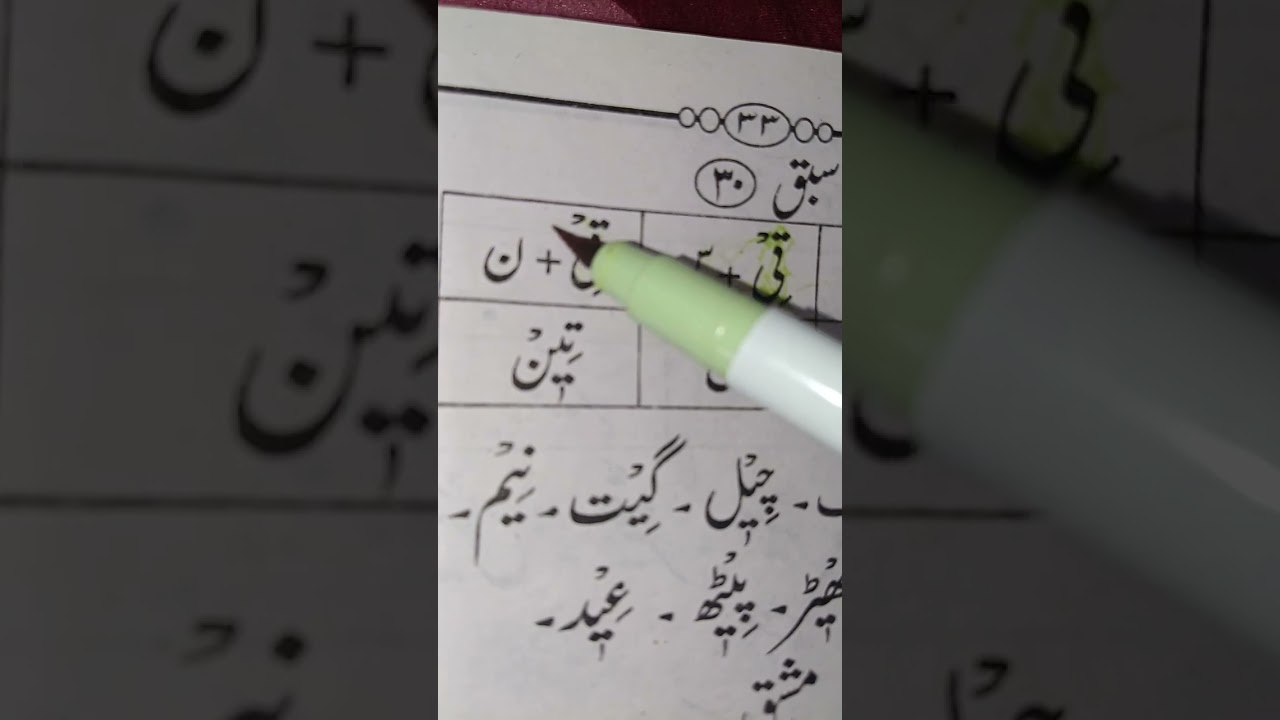 ۳۳
سبق ۳۰
تِیْ + تِیْ + ن
تِیْنْ
چِیْل ۔ گِیْت ۔ نِیْم ۔
پِیْٹھ ۔ عِیْد ۔
مشق